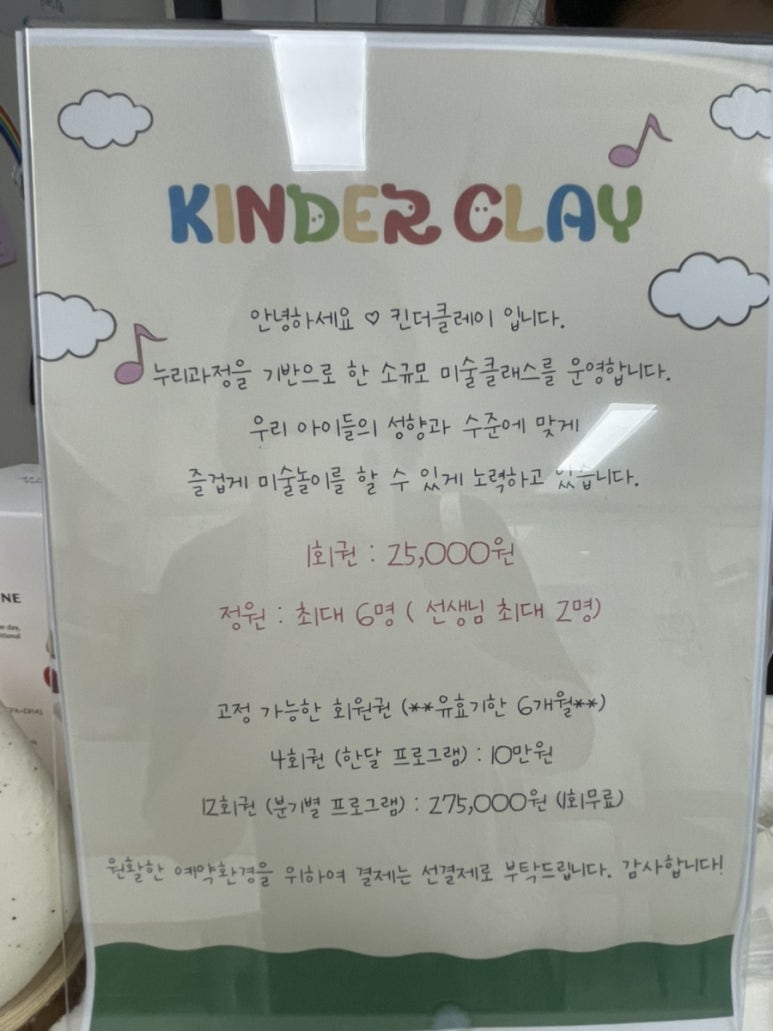 KINDER CLAY
안녕하세요 ♡ 킨더클레이 입니다.
누리과정을 기반으로 한 소규모 미술클래스를 운영합니다.
우리 아이들의 성향과 수준에 맞게
즐겁게 미술놀이를 할 수 있게 노력하고 있습니다.
1회권 : 25,000원
정원 : 최대 6명 ( 선생님 최대 2명)
고정 가능한 회원권 (**유효기한 6개월**)
4회권 (한달 프로그램) : 10만원
12회권 (분기별 프로그램) : 275,000원 (1회무료)
원활한 예약환경을 위하여 결제는 선결제로 부탁드립니다. 감사합니다!
NE